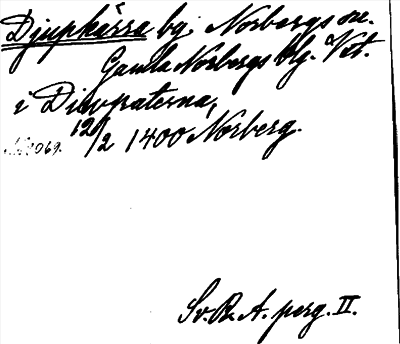 Djupkärra by, Norbergs sn.
Gamla Norbergs blg. Vst.
i Diwpaterna,
12/2 1400 Norberg.
069.
Sv. R. A. perg. II.